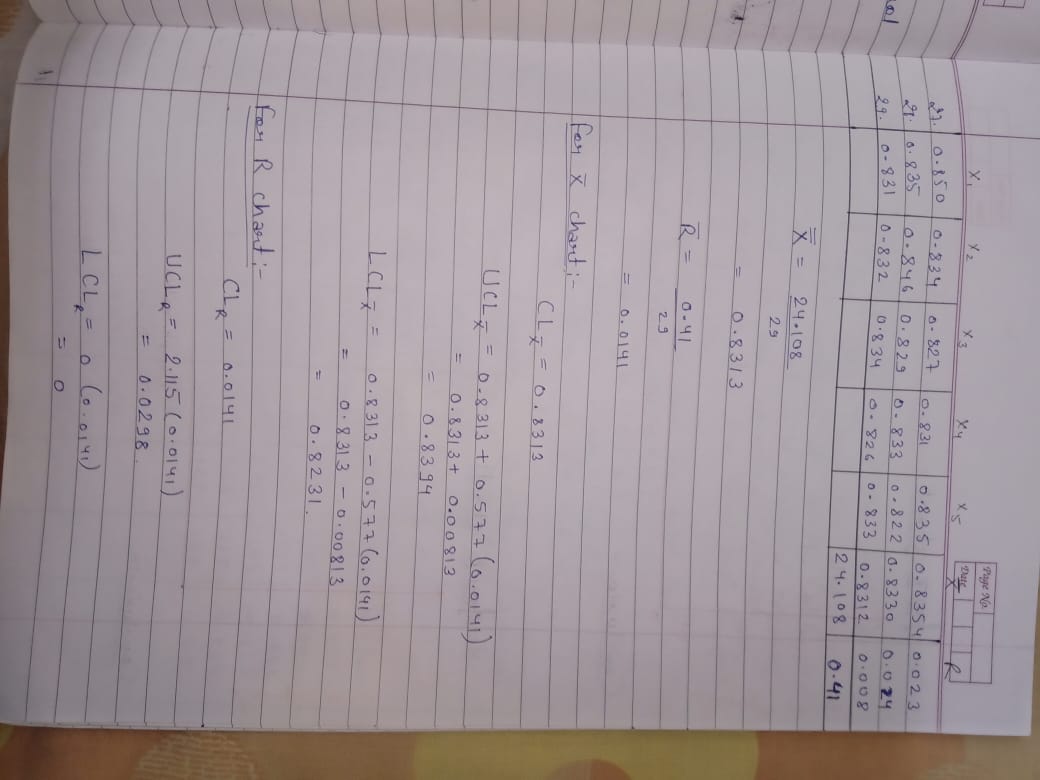 Page No.
Date
X₁ X₂ X₃ X₄ X₅ X̄ R
27. 0.850 0.834 0.827 0.831 0.835 0.8354 0.023
28. 0.835 0.846 0.829 0.833 0.822 0.8330 0.024
29. 0.831 0.832 0.834 0.826 0.833 0.8312 0.008
24.108 0.41
X̿ = 24.108
29
= 0.8313
R̄ = 0.41
29
= 0.0141
For X̄ chart :-
CLX̄ = 0.8313
UCLX̄ = 0.8313 + 0.577 (0.0141)
= 0.8313 + 0.00813
= 0.8394
LCLX̄ = 0.8313 - 0.577 (0.0141)
= 0.8313 - 0.00813
= 0.8231.
For R chart :-
CLR = 0.0141
UCLR = 2.115 (0.0141)
= 0.0298.
LCLR = 0 (0.0141)
= 0